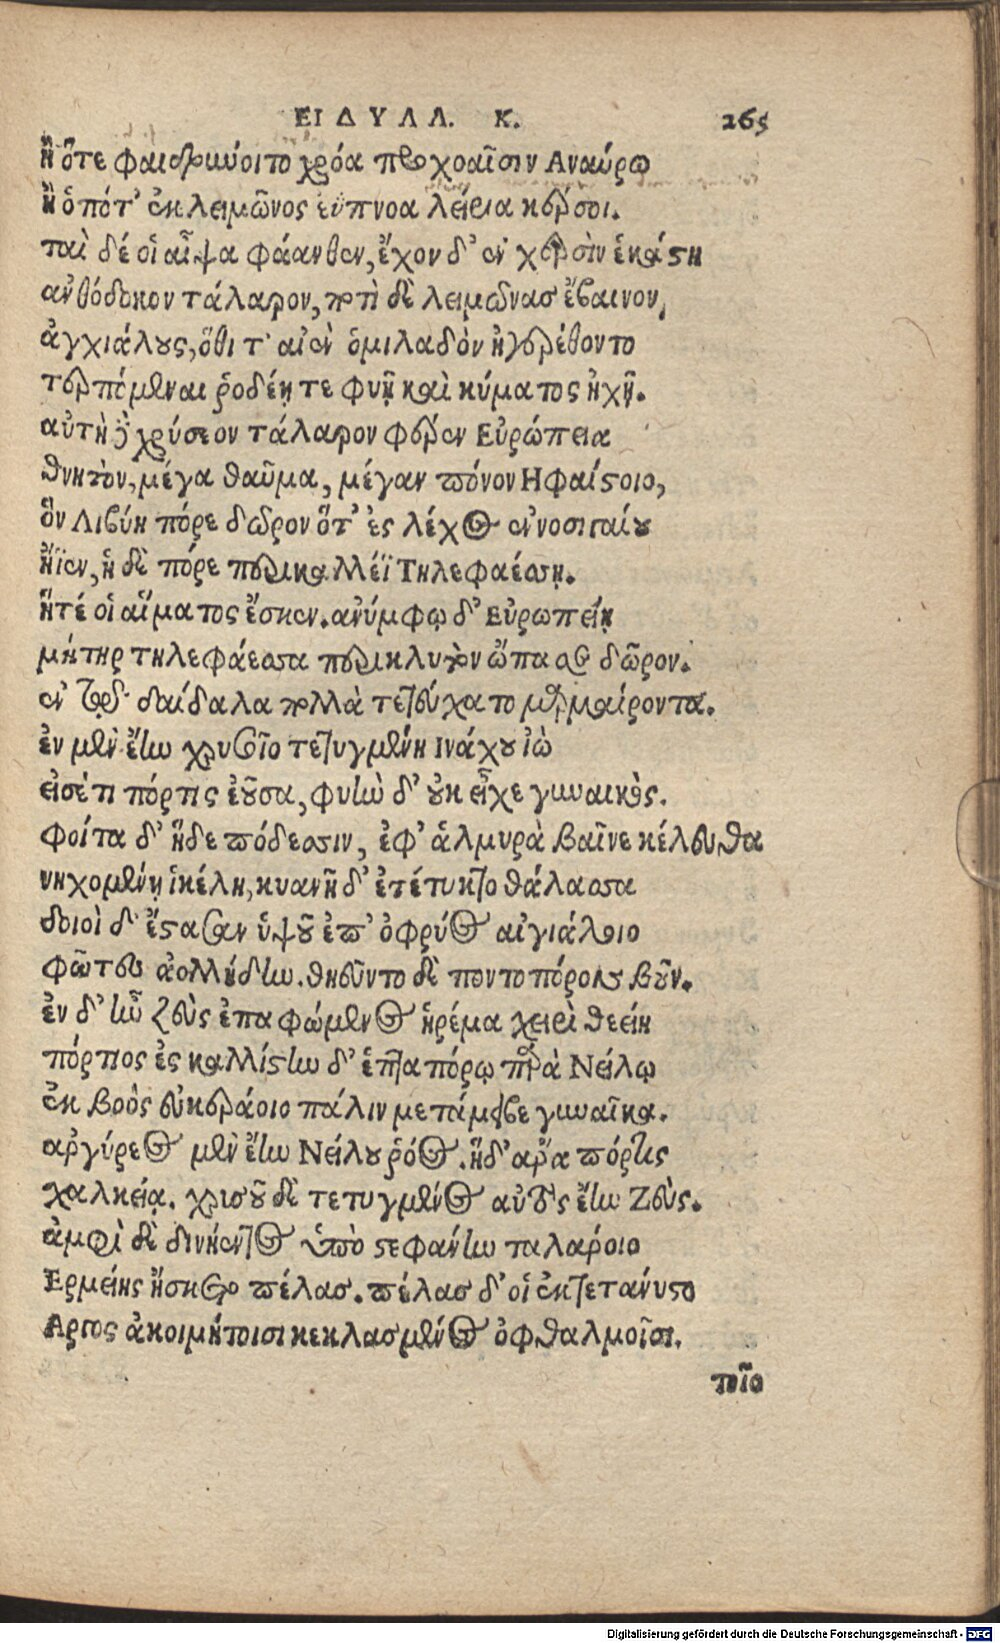 ΕΙΔΥΛΛ. Κ. 265
ἢ ὅτε φαιδρύνοιτο χρόα προχοαῖσιν Αναύρω
ἢ ὁπότ' ἐκ λειμῶνος εὔπνοα λείρια κέρσοι.
ταὶ δέ οἱ αἶψα φάανθεν, ἔχον δ' ἐν χερσὶν ἑκάστη
ἀνθόδοκον τάλαρον, ποτὶ δὲ λειμῶνασ ἔβαινον,
ἀγχιάλους, ὅθι τ' αἰὲν ὁμιλαδὸν ἠγερέθοντο
τερπόμεναι ῥοδέῃ τε φυῇ καὶ κύματος ἠχῇ.
αὐτὴ δὲ χρύσεον τάλαρον φέρεν Εὐρώπεια
θνητὸν, μέγα θαῦμα, μέγαν πόνον Ηφαίστοιο,
ὃν Λιβύη πόρε δῶρον ὅτ' ἐς λέχος ἐννοσιγαίου
ἤϊεν, ἡ δὲ πόρε περικαλλέϊ Τηλεφαέσση.
ἥτέ οἱ αἵματος ἔσκεν. ἀνύμφῳ δ' Εὐρωπείῃ
μήτηρ τηλεφάεσσα περικλυτὸν ὤπασε δῶρον.
ἐν τῷ δαίδαλα πολλὰ τετεύχατο μαρμαίροντα.
ἐν μὲν ἔην χρυσῖο τετυγμένη Ινάχου ἰὼ
εἰσέτι πόρτις ἐοῦσα, φυὴν δ' οὐκ εἶχε γυναικός.
φοίτα δ' ἥδε πόδεσσιν, ἐφ' ἁλμυρὰ βαῖνε κέλευθα
νηχομένῃ ἰκέλη, κυανῆ δ' ἐτέτυκτο θάλασσα
δοιοὶ δ' ἔστασαν ὑψοῦ ἐπ' ὀφρύος αἰγιάλοιο
φῶτες ἀολλήδην. θηεῦντο δὲ ποντοπόρον βοῦν.
ἐν δ' ἦν ζεὺς ἐπαφώμενος ἠρέμα χειρὶ θεείη
πόρτιος ἐς καλλίστην δ' ἑπταπόρῳ παρὰ Νείλῳ
ἐκ βοὸς εὐκεράοιο πάλιν μετάμειβε γυναῖκα.
ἀργύρεος μὲν ἔην Νείλου ῥόος. ἡδ' ἄρα πόρτις
χαλκείη. χρισοῦ δὲ τετυγμένος αὐτὸς ἔην Ζεύς.
ἀμφὶ δὲ δινήεντος ὑπὸ στεφάνην ταλάροιο
Ερμείης ἤσκητο πέλασ. πέλασ δ' οἱ ἐκτετάνυστο
Αργος ἀκοιμήτοισι κεκλασμένος ὀφθαλμοῖσι.
τοῖο
Digitalisierung gefördert durch die Deutsche Forschungsgemeinschaft - DFG